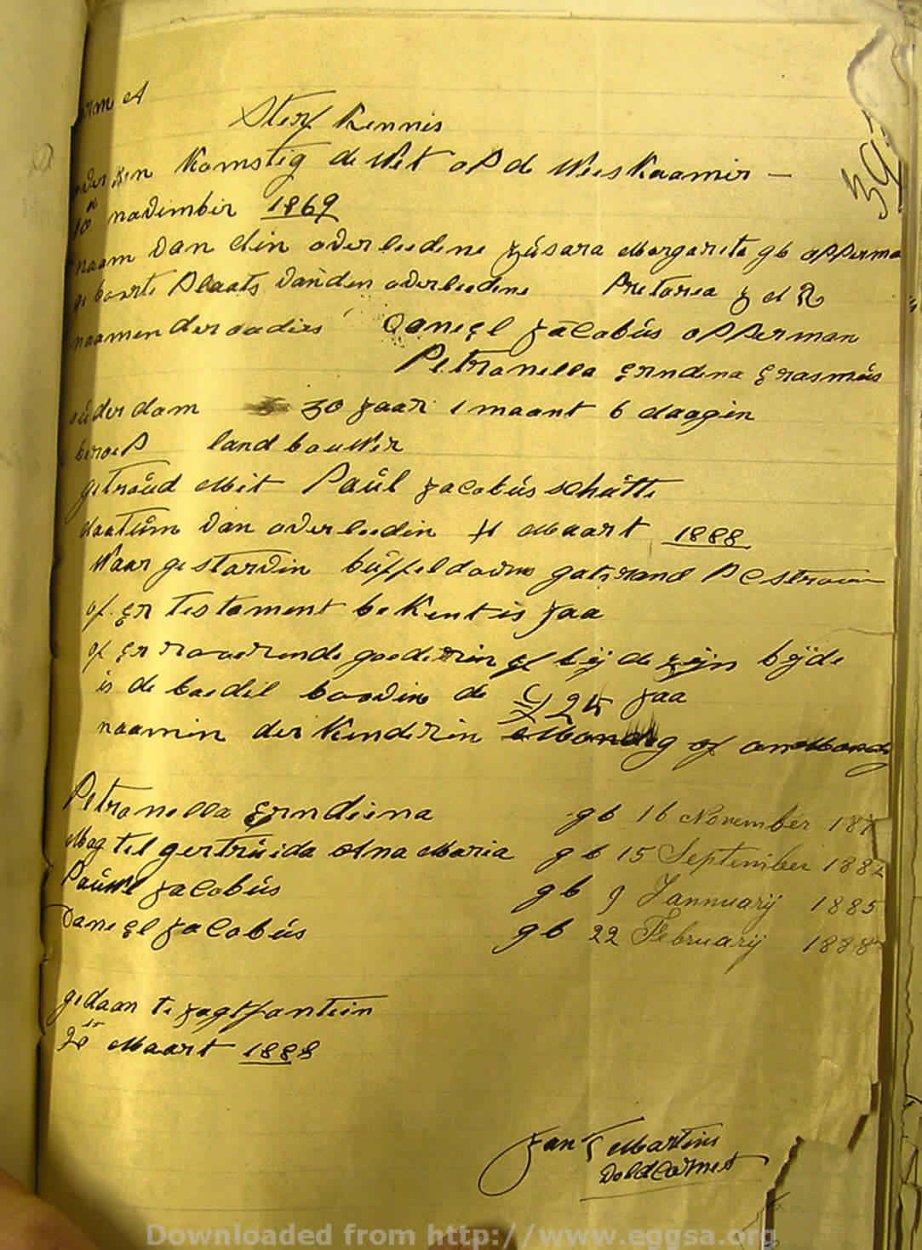 Sterf Kennis
Komstig de Wet op de Weeskaamir —
10 novimbir 1869
naam van din overleedine Susara Margarita gb opperma
geboorte Plaats vanden overleedine Pretoria Z A R
naamen der oudirs Daniel Jacobús opperman
Petronella Erndina Erasmús
oúderdom 30 Jaar 1 maant 6 daagin
beroep landbouwer
getroúd Mit Paúl Jacobús schútte
daatúm van overleedin 4 Maart 1888
Waar gestorvin búffeldoorns gatsrand
of Er Testament bekent is Jaa
of Er rooerende goederin of bij de zijn bijde
is de boedil boovin de £ 25 Jaa
naamin der Kinderin of onmondg
Petronella Erndiena gb 16 November 187
Magtel gertrúida Ana Maria gb 15 September 1882
Paúwl Jacobús gb 9 Jannuarij 1885
Daniel Jacobús gb 22 Februarij 1888
gedaan te Jagtfontein
Maart 1888
Jan Martins
Veldcornet
Downloaded from http://www.eggsa.org